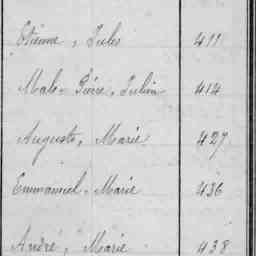 Etienne, Jules 411
Malo-Pierre, Julien 414
Auguste, Marie 427
Emmanuel-Marie 436
André, Marie 438